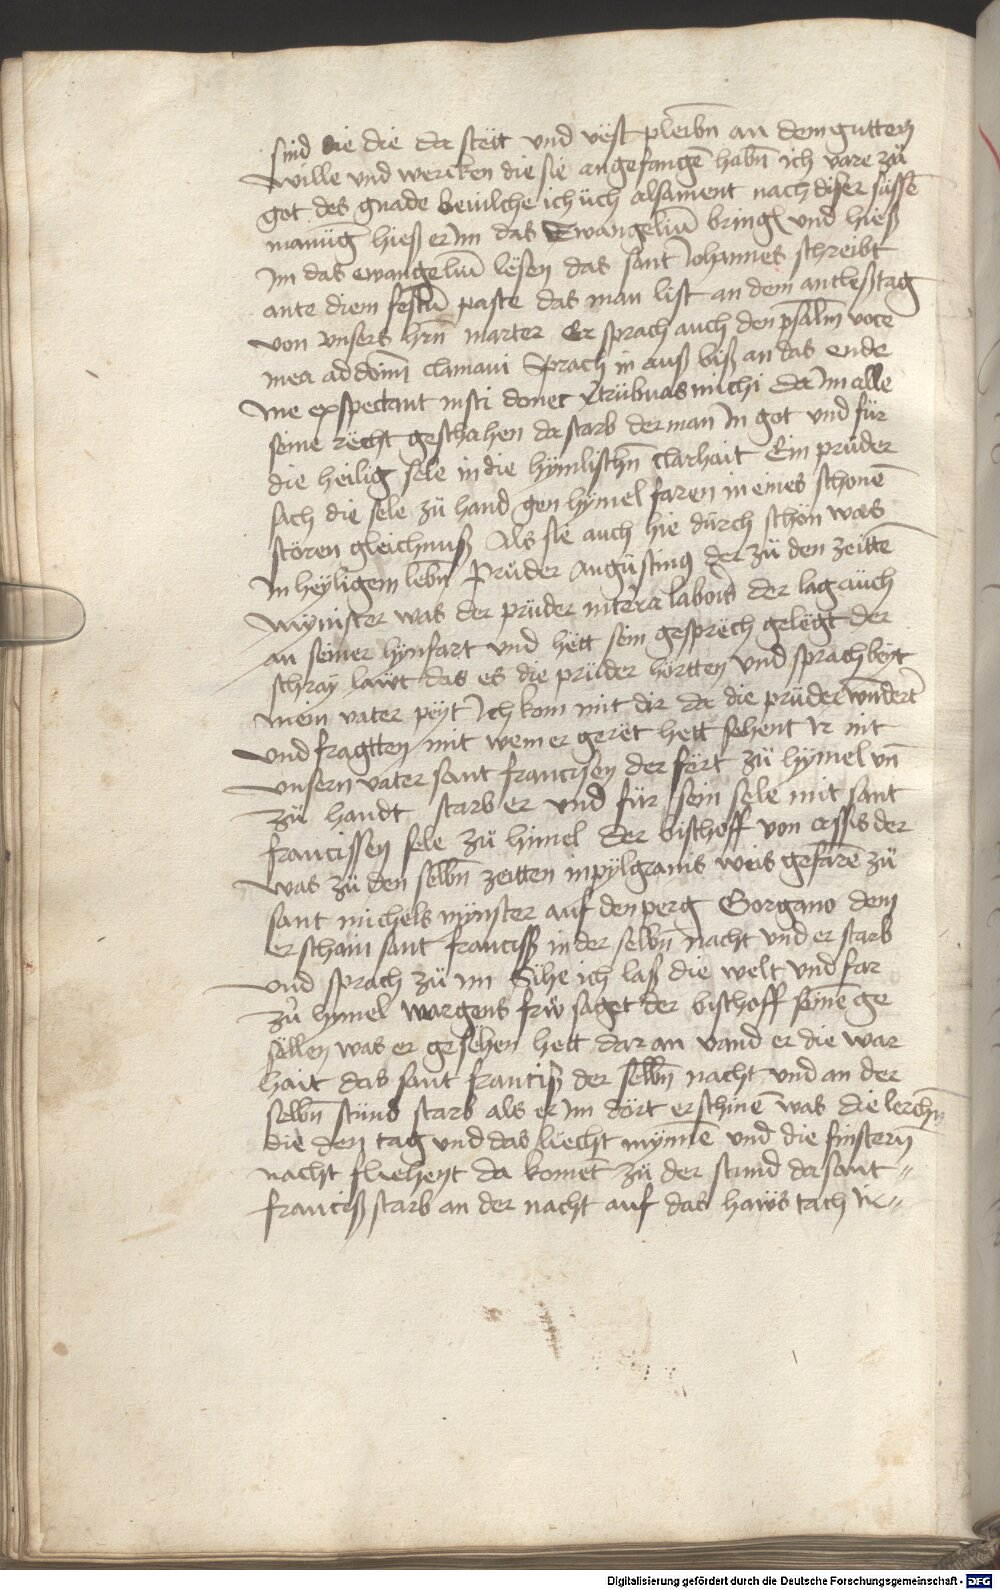 sind die die da stëtt vnd vëst pleibn̄ an dem gutten
wille vnd wercken die sie angefangē habn̄ ich vare zü
got des gnade beuilche ich üch alsament nach diser süssē
manūg hieß er Im das Ewangeliū bringē vnd hieß
Im das ewangeliū lësen das sant Johannes schreibt
ante diem festū paste das man list an dem antleßtag
von vnsers hrn̄ marter Er sprach auch den psalm̄ voce
mea ad dom̄ clamaui Sprach in auß biß an das ende
me exspectant iusti donec retribuas michi da Im alle
seine rëcht geschahen da starb der man In got vnd für
die heilig sele in die hymlischn̄ clarhait Ein prüder
sach die sele zü hand gen hymel faren in eines schonē
stören gleichnuß Als sie auch hie dürch schön was
In heyligem lebn̄ Prüder Augüstinus der zü den zeittē
mynister was der prüder in terra laboris der lag aüch
an seiner hynfart vnd hëtt sein gesprëch gelëgt der
schray laẅt das es die prüder hörtten vnd sprach beyt
mein vater peyt Ich kom mit dir da die prüder wndertē
vnd fragtten mit wem er gerët hett sehent Ir nit
vnsern vater sant francisen der fërt zü hymel vn̄
zü handt starb er vnd für sein sele mit sant
francissen sele zü himel der bischoff von assis der
was zü den selbn̄ zeitten in pylgrams weis gefarē zü
sant michels mynster auf den perg Gorgano dem
erschain sant franciß in der selbn̄ nacht vnd er starb
vnd sprach zü im Sihe ich laß die welt vnd far
zü hymel margens frẅ saget der bischoff seinē ge
sëllen was er gesëhen hett dar an vand er die war
hait das sant franciß der selbn̄ nacht vnd an der
selbn̄ stünd starb als er im dört erschinē was die lerchn̄
die den tag vnd das liecht mynnē vnd die finstern̄
nacht fliehent da komēt zü der stund da sant
franciß starb an der nacht auf das haẅs tach
Digitalisierung gefördert durch die Deutsche Forschungsgemeinschaft - DFG